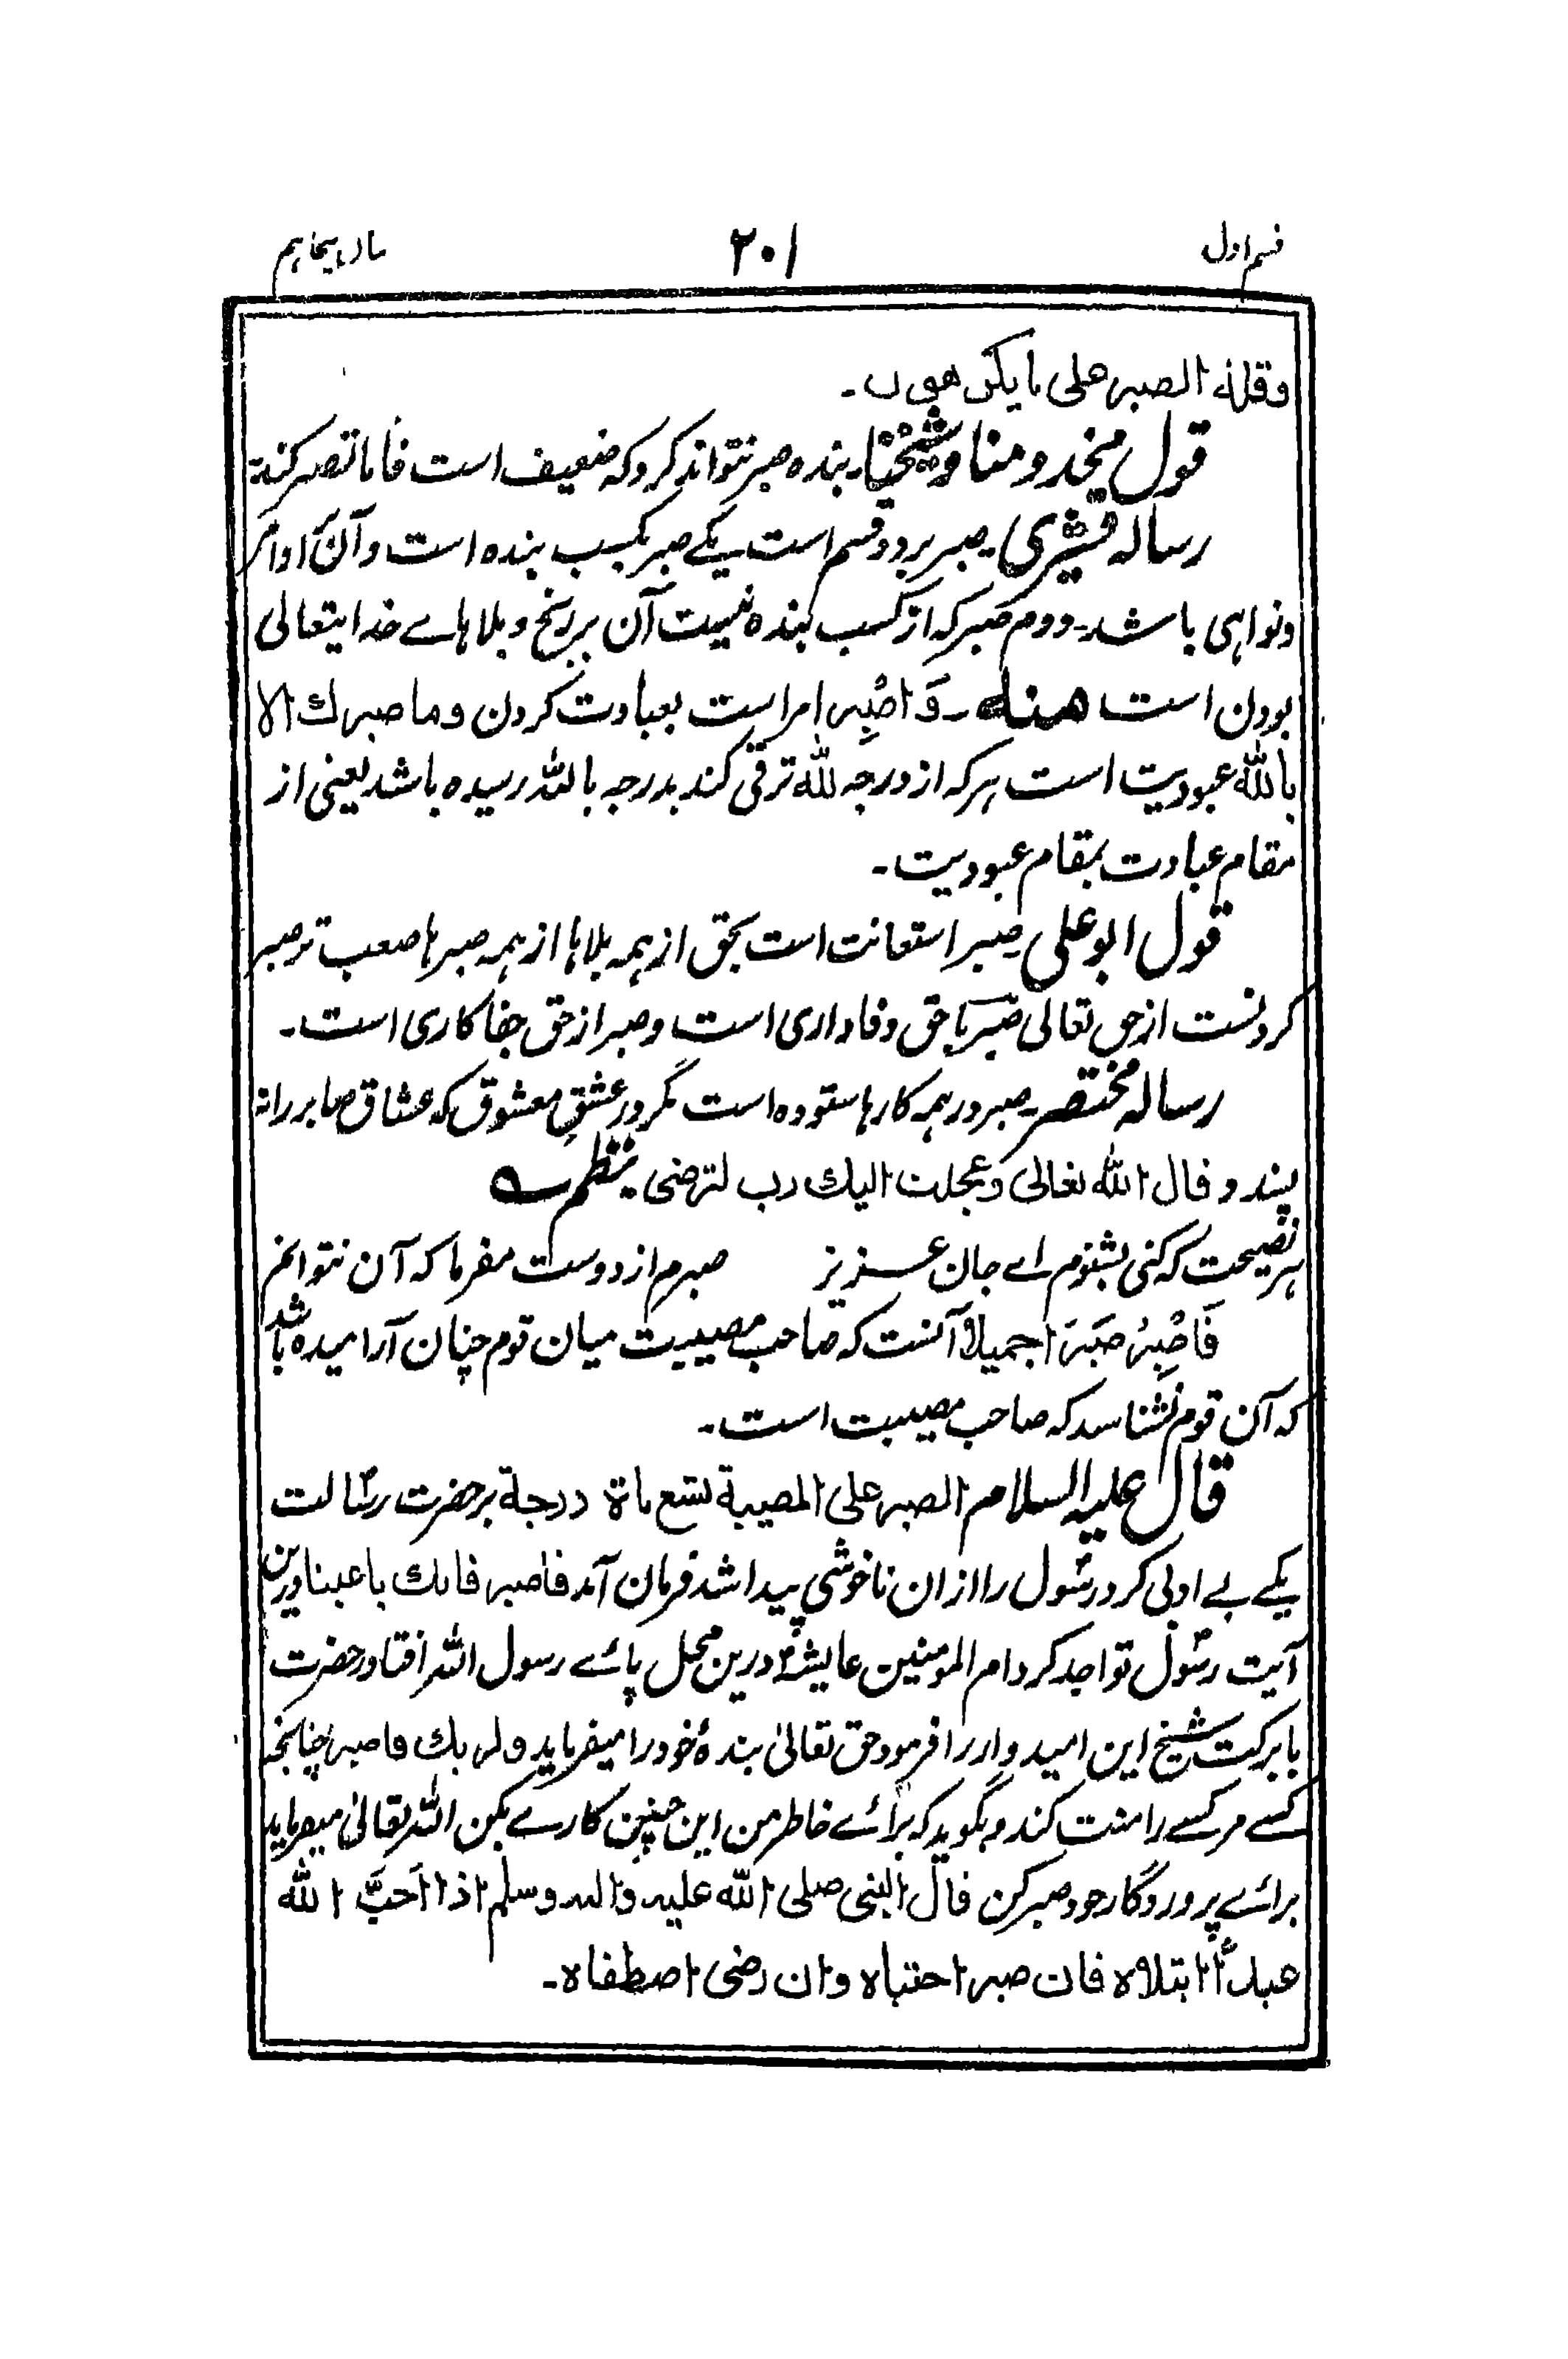 قسم اول ۲۰۱
وقلة الصبر على ما یکرهون۔
قول مخدومنا وشیخنا۔ بنده صبر نتواند کرد که ضعیف است فاما تصبر کند
رساله قشیری۔ صبر بر دو قسم است یکے صبر بکسب بنده است و آن بر اوامر
ونواہی باشد۔ دوم صبر که از کسب بنده نیست آن بر رنج و بلا ہاے خدایتعالی
بودن است منه ۔ وَاصْبِر امر است بعبادت کردن وما صبرك الا
باللّٰه عبودیت است ہر که از درجه للّٰه ترقی کند بدرجه باللّٰه رسیده باشد یعنی از
مقام عبادت بمقام عبودیت۔
قول ابو علی۔ صبر استعانت است بحق از ہمه بلاہا از ہمه صبر ہا صعب تر صبر
کردنست از حق تعالی صبر با حق وفاداری است و صبر از حق جفا کاری است۔
رساله مختصر۔ صبر در ہمه کارہا ستوده است مگر در عشقِ معشوق که عشاق صابر را نه
پسندد قال اللّٰه تعالى وعجلت اليك رب لترضى۔ نظم
ہر نصیحت که کنی بشنوم اے جان عزیز صبرم از دوست مفرما که آن نتوانم
فَاصْبِرْ صَبْرًا جمیلاً آنست که صاحب مصیبت میان قوم چنان آرامیده باشد
که آن قوم نشناسد که صاحب مصیبت است۔
قال علیه السلام الصبر على المصيبة تسع ماة درجة بر حضرت رسالت
یکے بے ادبی کرد رسول را ازان ناخوشی پیدا شد فرمان آمد فاصبر فانك باعیننا درین
آیت رسول تواجد کرد ام المومنین عایشہ درین محل پائے رسول اللّٰه افتاد حضرت
با برکت شیخ این امیدوار را فرمود حق تعالیٰ بندهٔ خود را میفرماید ولربك فاصبر چنانچه
کسے مر کسے را منت کند و بگوید که برائے خاطر من این چنین کارے بکن اللّٰه تعالیٰ میفرماید
برائے پروردگار خود صبر کن قال النبی صلی اللّٰه علیه واله وسلم اذا اَحَبَّ اللّٰه
عبداً ابتلاه فان صبر اجتباه وان رضی اصطفاه۔